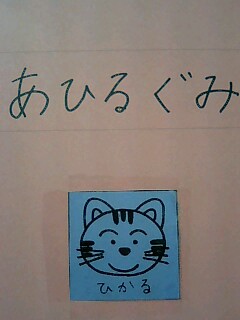 あひるぐみ
ひかる